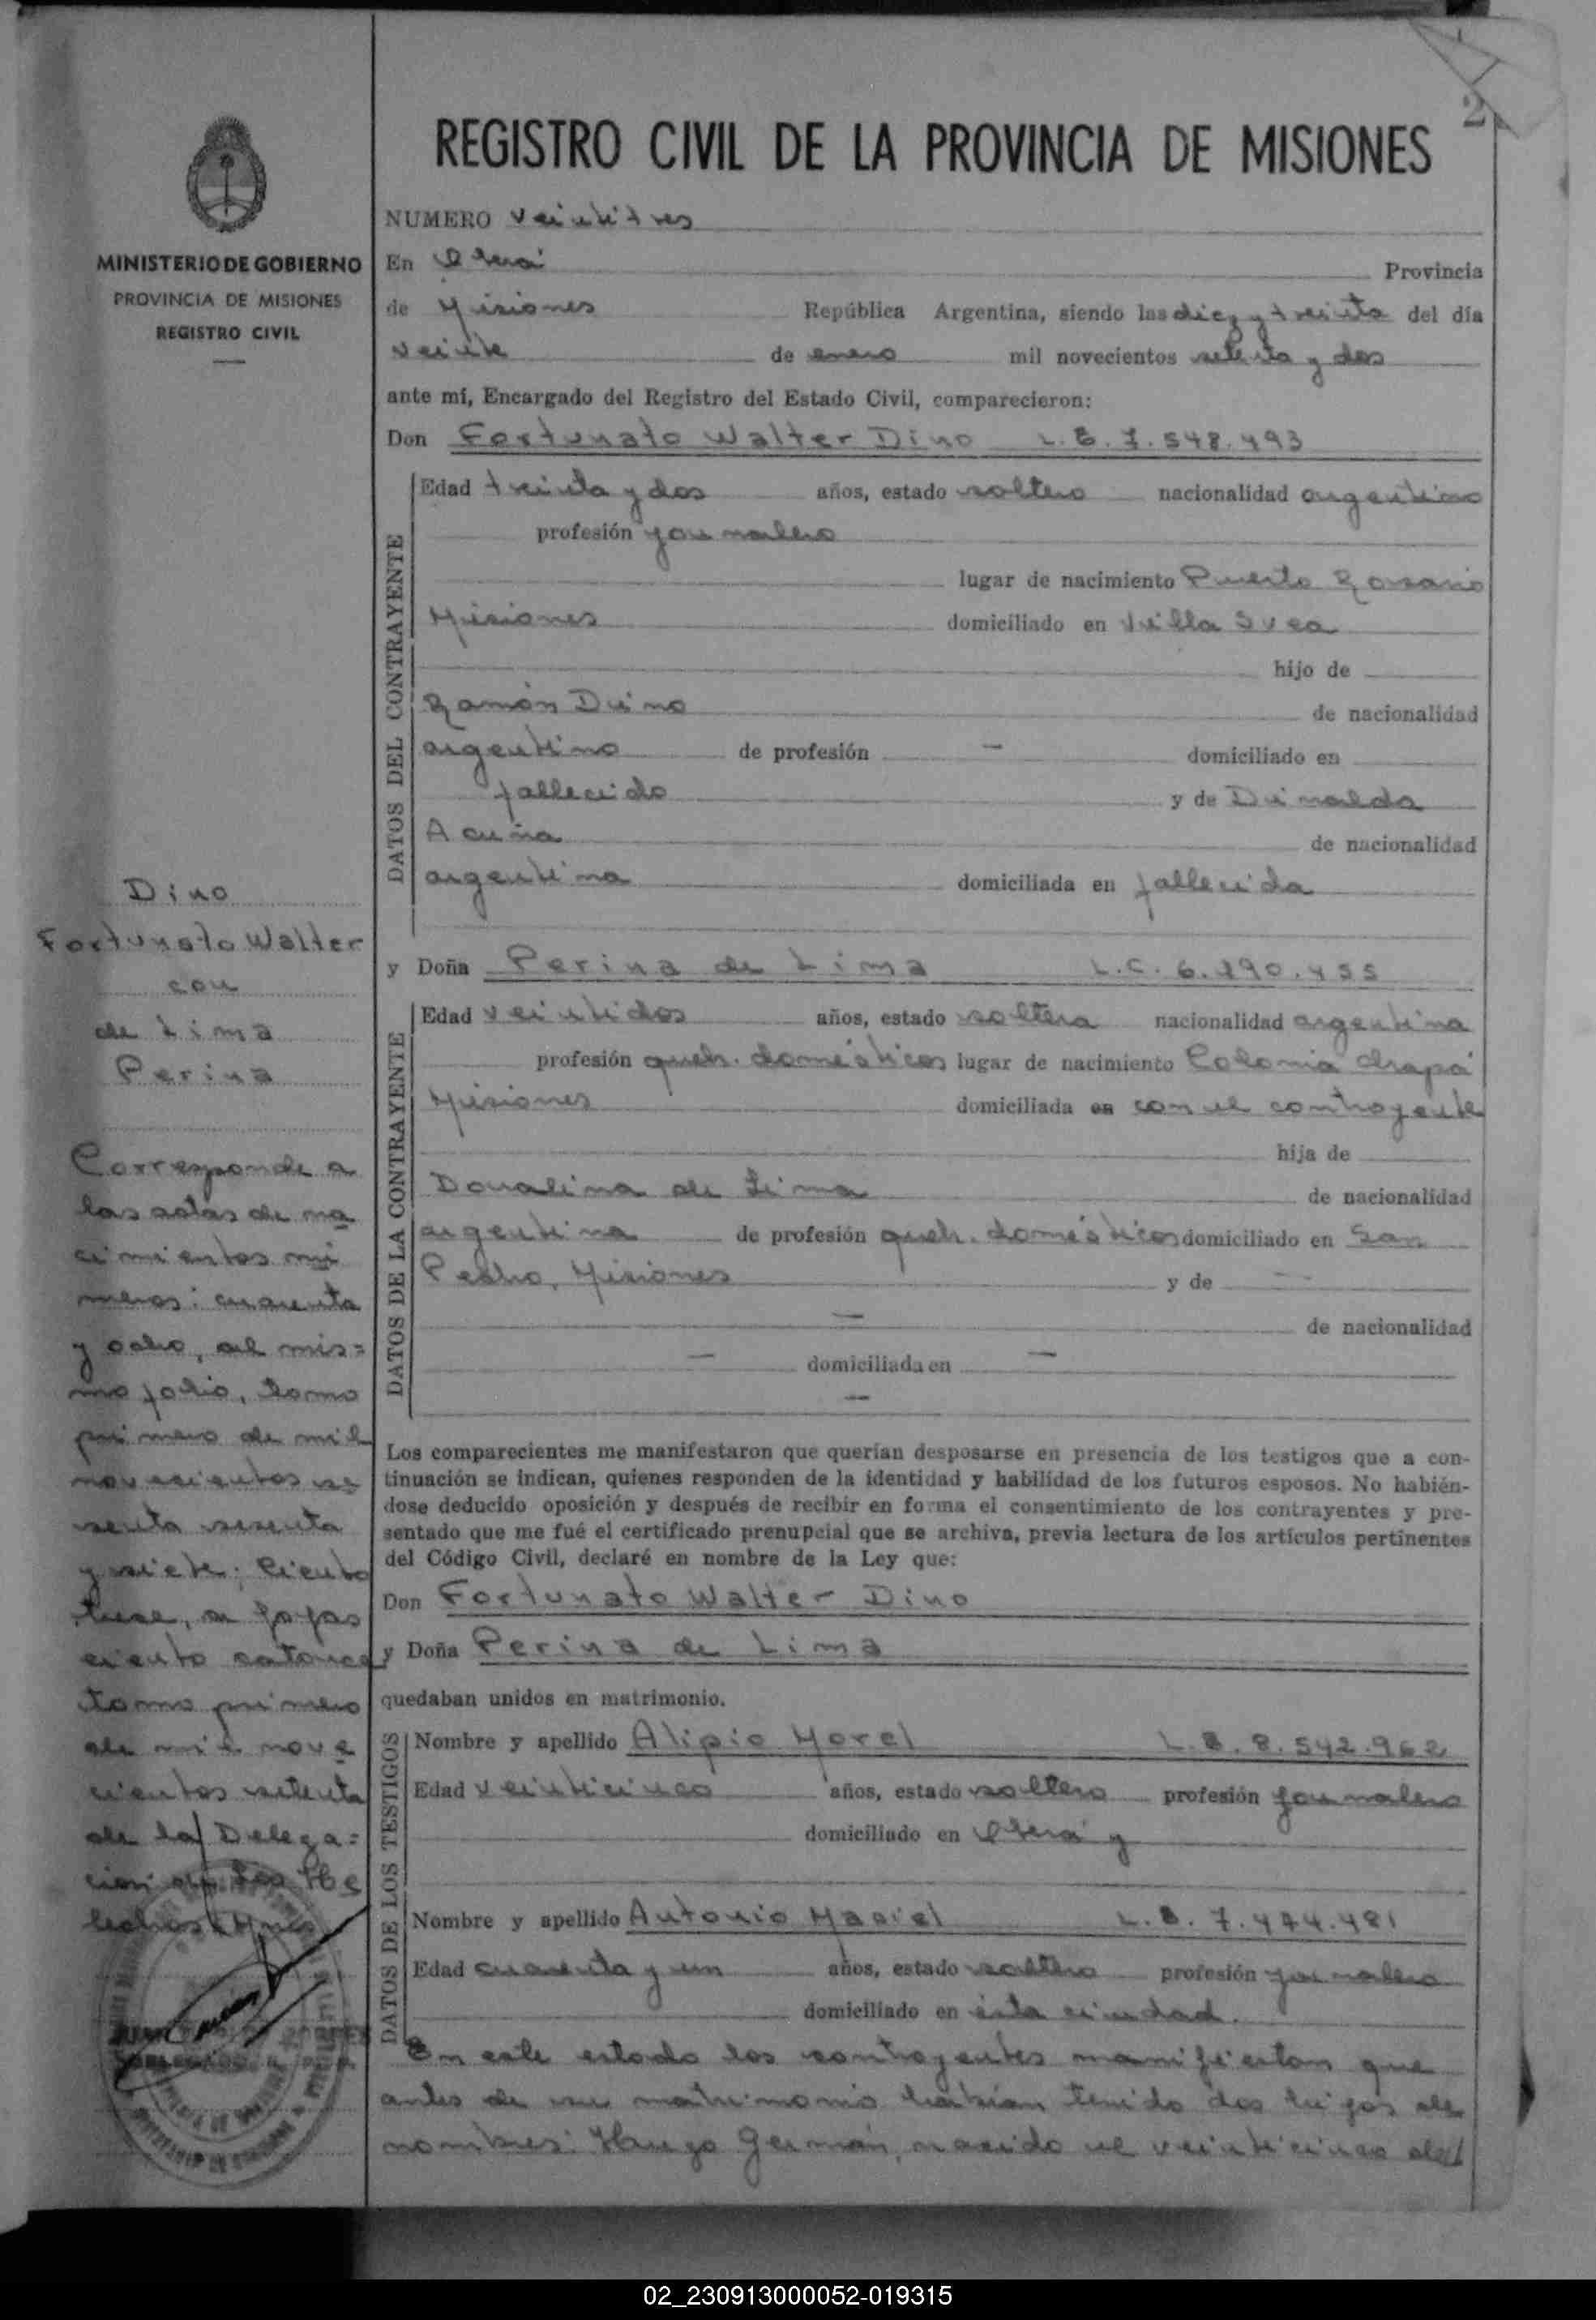 2
REGISTRO CIVIL DE LA PROVINCIA DE MISIONES
MINISTERIO DE GOBIERNO
PROVINCIA DE MISIONES
REGISTRO CIVIL
NUMERO veintitres
En Oberá Provincia
de Misiones República Argentina, siendo las diez y treinta del día
veinte de enero mil novecientos setenta y dos
ante mí, Encargado del Registro del Estado Civil, comparecieron:
Don Fortunato Walter Dino L.E. 7.548.493
DATOS DEL CONTRAYENTE
Edad treinta y dos años, estado soltero nacionalidad argentino
profesión jornalero
lugar de nacimiento Puerto Rosario
Misiones domiciliado en Villa Svea
hijo de
Ramón Dino de nacionalidad
argentino de profesión — domiciliado en
fallecido y de Dinalda
Acuña de nacionalidad
argentina domiciliada en fallecida
y Doña Perina de Lima L.C. 6.290.455
DATOS DE LA CONTRAYENTE
Edad veintidos años, estado soltera nacionalidad argentina
profesión queh. domésticos lugar de nacimiento Colonia Chapá
Misiones domiciliada en con el contrayente
hija de
Doralina de Lima de nacionalidad
argentina de profesión queh. domésticos domiciliado en San
Pedro, Misiones y de —
— de nacionalidad
— domiciliada en —
—
Los comparecientes me manifestaron que querían desposarse en presencia de los testigos que a con-
tinuación se indican, quienes responden de la identidad y habilidad de los futuros esposos. No habién-
dose deducido oposición y después de recibir en forma el consentimiento de los contrayentes y pre-
sentado que me fué el certificado prenupcial que se archiva, previa lectura de los artículos pertinentes
del Código Civil, declaré en nombre de la Ley que:
Don Fortunato Walter Dino
y Doña Perina de Lima
quedaban unidos en matrimonio.
DATOS DE LOS TESTIGOS
Nombre y apellido Alipio Morel L.E. 8.542.962
Edad veinticinco años, estado soltero profesión jornalero
domiciliado en Oberá y
Nombre y apellido Antonio Maciel L.E. 7.474.481
Edad cuarenta y un años, estado soltero profesión jornalero
domiciliado en ésta ciudad.
En este estado los contrayentes manifiestan que
antes de su matrimonio habían tenido dos hijos de
nombres: Hugo Germán, nacido el veinticinco de
Dino
Fortunato Walter
con
de Lima
Perina
Corresponde a
las actas de na
cimientos nú
meros: cuarenta
y ocho, al mis=
mo folio, tomo
primero de mil
novecientos se
senta sesenta
y siete; ciento
trece, a fojas
ciento catorce
tomo primero
de mil nove
cientos setenta
de la Delega=
ción de los He
lechos, Mnes
02_230913000052-019315